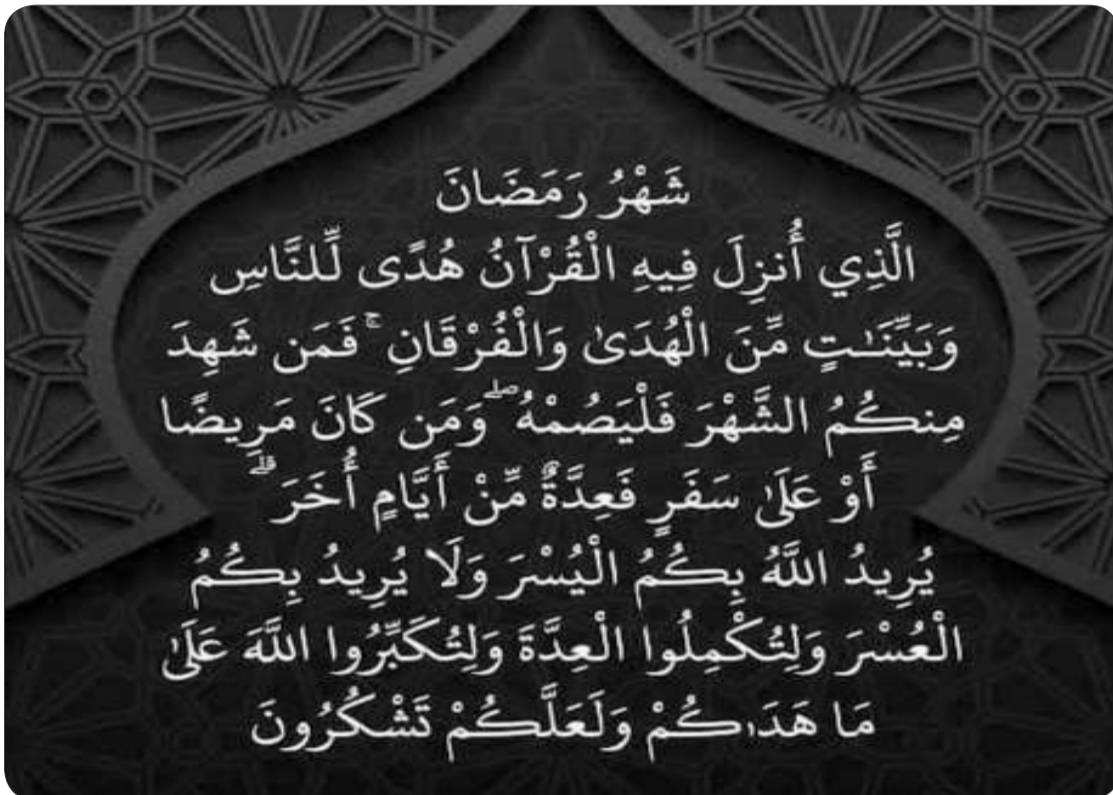 شَهْرُ رَمَضَانَ
الَّذِي أُنزِلَ فِيهِ الْقُرْآنُ هُدًى لِّلنَّاسِ
وَبَيِّنَـٰتٍ مِّنَ الْهُدَىٰ وَالْفُرْقَانِ ۚ فَمَن شَهِدَ
مِنكُمُ الشَّهْرَ فَلْيَصُمْهُ ۖ وَمَن كَانَ مَرِيضًا
أَوْ عَلَىٰ سَفَرٍ فَعِدَّةٌ مِّنْ أَيَّامٍ أُخَرَ ۗ
يُرِيدُ اللَّهُ بِكُمُ الْيُسْرَ وَلَا يُرِيدُ بِكُمُ
الْعُسْرَ وَلِتُكْمِلُوا الْعِدَّةَ وَلِتُكَبِّرُوا اللَّهَ عَلَىٰ
مَا هَدَىٰكُمْ وَلَعَلَّكُمْ تَشْكُرُونَ